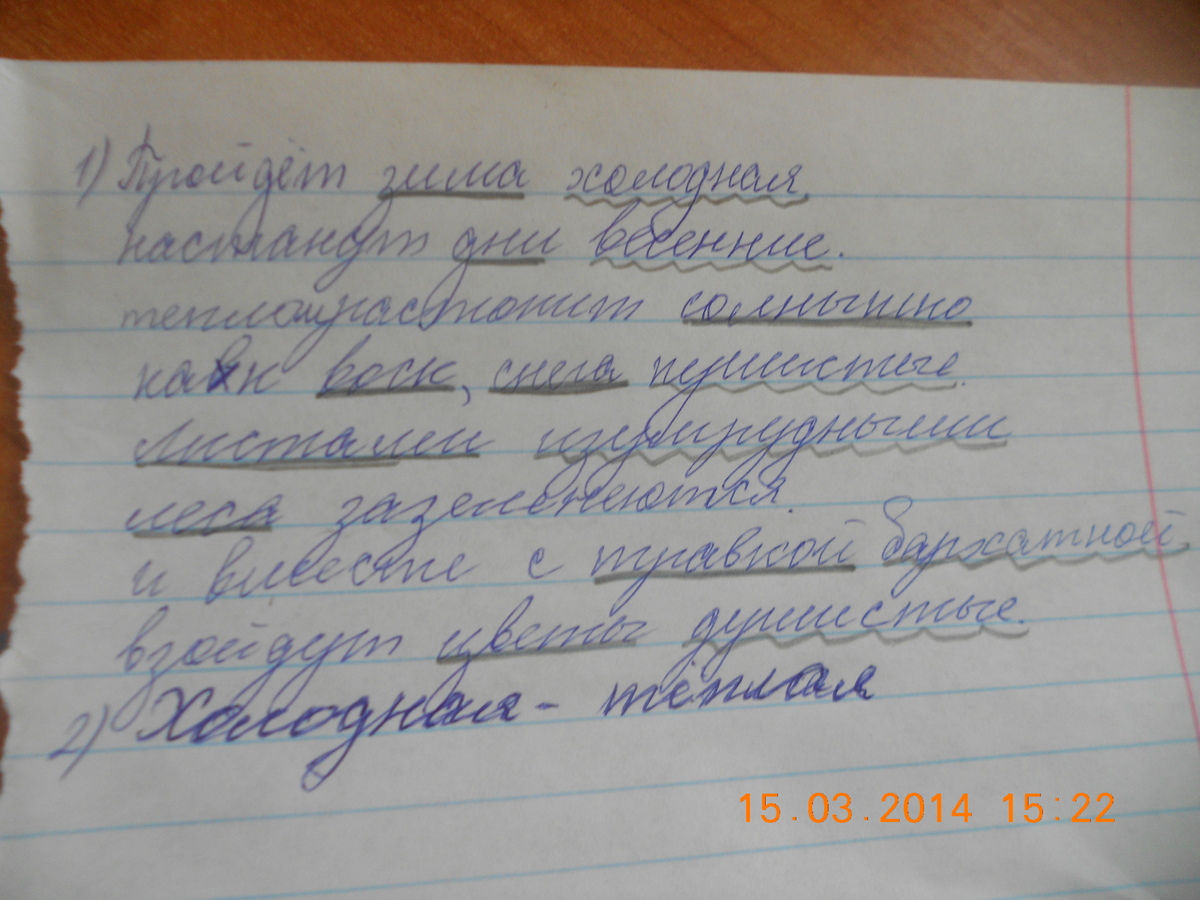 1) Пройдёт зима холодная,
настанут дни весенние.
теплом растопит солнышко
как воск, снега пушистые.
Листами изумрудными
леса зазеленеются.
и вместе с травкой бархатной.
взойдут цветы душистые.
2) Холодная - тёплая
15.03.2014 15:22